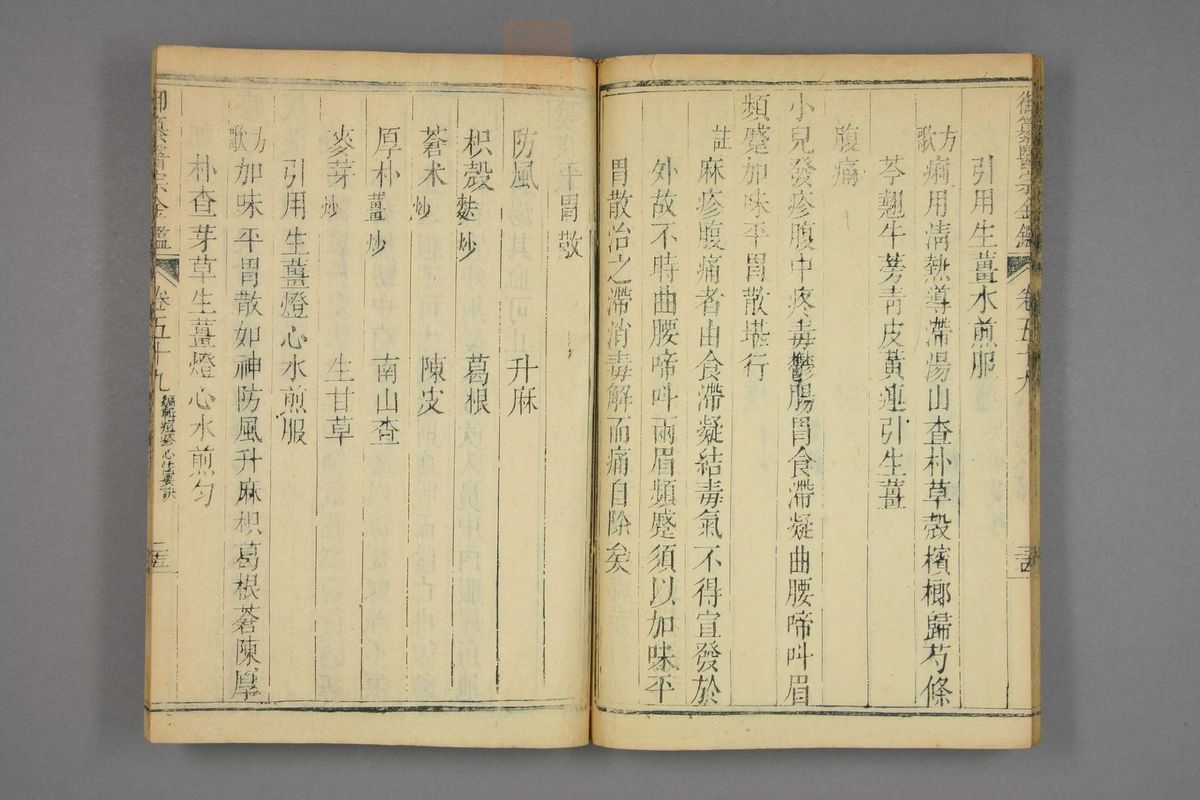 御纂醫宗金鑑 卷五十九
引用生薑水煎服
方歌 痢用清熱導滯湯山查朴草殼檳榔歸芍條
芩翹牛蒡青皮黃連引生薑
腹痛
小兒發疹腹中疼毒鬱腸胃食滯凝曲腰啼叫眉
頻蹙加味平胃散堪行
註 麻疹腹痛者由食滯凝結毒氣不得宣發於
外故不時曲腰啼叫兩眉頻蹙須以加味平
胃散治之滯消毒解而痛自除矣
平胃散
防風 升麻
枳殼麩炒 葛根
蒼朮炒 陳皮
厚朴薑炒 南山查
麥芽炒 生甘草
引用生薑燈心水煎服
方歌 加味平胃散如神防風升麻枳葛根蒼陳厚
朴查芽草生薑燈心水煎勻
御纂醫宗金鑑 卷五十九 編輯痘疹心法要訣 二五